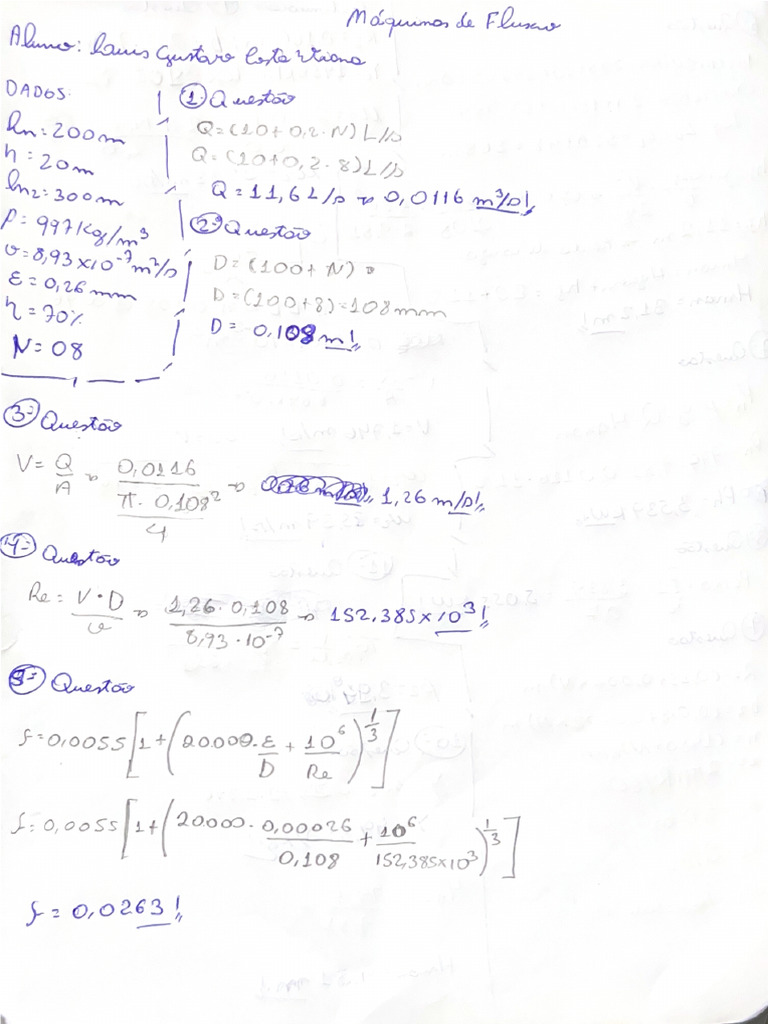 Máquinas de Fluxo
Aluno: Gustavo Costa Viana
DADOS:
hn=200m
h=20m
hn2=300m
ρ=997Kg/m³
υ=8,93x10⁻⁷m²/s
ε=0,26mm
η=70%
N=08
1ª Questão
Q=(10+0,2·N)L/s
Q=(10+0,2·8)L/s
Q=11,6L/s → 0,0116 m³/s!
2ª Questão
D=(100+N)
D=(100+8)=108mm
D=0,108m!
3ª Questão
V=Q/A → 0,0116/(π·0,108²/4) → 1,26m/s!
4ª Questão
Re=V·D/υ → 1,26·0,108/8,93·10⁻⁷ → 152,385x10³!
5ª Questão
f=0,0055[1+(20.000·ε/D+10⁶/Re)^1/3]
f=0,0055[1+(20000·0,00026/0,108+10⁶/152,385x10³)^1/3]
f=0,0263!